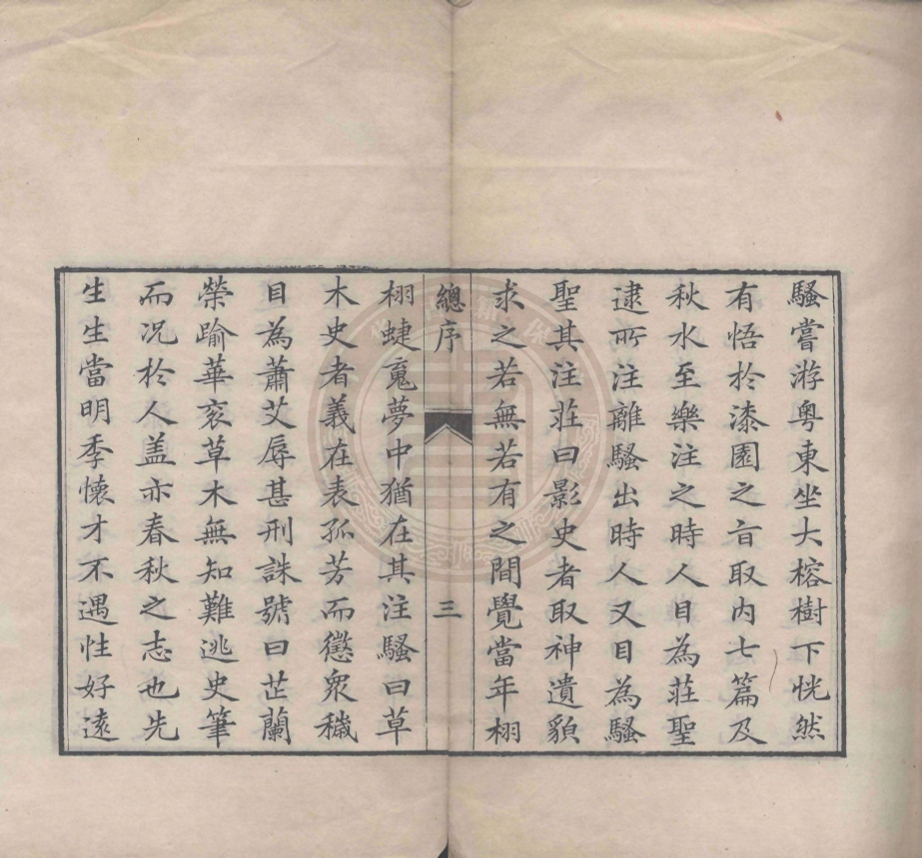 騷嘗游粵東坐大榕樹下恍然
有悟於漆園之㫖取内七篇及
秋水至樂注之時人目為莊聖
逮所注離騷出時人又目為騷
聖其注莊曰影史者取神遺貌
求之若無若有之間覺當年栩
總序
三
栩蜨䰟夢中猶在其注騷曰草
木史者義在表孤芳而懲衆穢
目為蕭艾辱甚刑誅號曰芷蘭
榮踰華衮草木無知難逃史筆
而况於人盖亦春秋之志也先
生生當明季懷才不遇性好遠